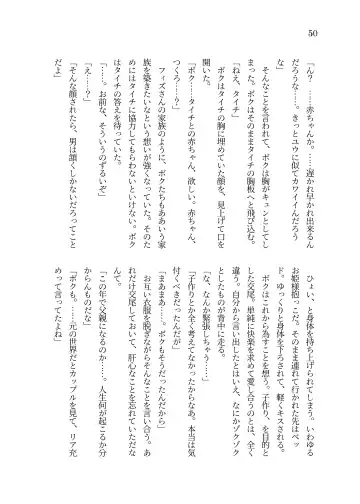 50
「ん？　……赤ちゃんか。……遅かれ早かれ出来るん
だろうな……。きっとユウに似てカワイイんだろう
な」
　そんなことを言われて、ボクは胸がキュンとしてし
まう。ボクはそのままタイチの胸板へと飛び込む。
「ねえ、タイチ」
　ボクはタイチの胸に埋めていた顔を、見上げて口を
開いた。
「ボク……タイチとの赤ちゃん、欲しい。赤ちゃん、
つくろ……？」
　フィズさんの家族のように、ボクたちもああいう家
族を築きたいなという想いが強くなっていた。そのた
めにはタイチに協力してもらわないといけない。ボク
はタイチの答えを待っていた。
「……。お前な、そういうのずるいぞ」
「え……？」
「そんな顔されたら、男は頷くしかないだろってこと
だよ」
　ひょい、と身体を持ち上げられてしまう。いわゆる
お姫様抱っこだ。そのまま連れて行かれた先はベッ
ド。ゆっくりと身体を下ろされて、軽くキスされる。
　ボクはこれから為すことを想う。子作り、を目的と
した交尾。単純に快楽を求めて愛し合うのとは、全く
違う。自分から言い出したとはいえ、なにかゾクゾク
としたものが背中に走る。
「な、なんか緊張しちゃう……」
「子作りとか全く考えてなかったからなあ。本当は気
付くべきだったんだが」
「まあまあ……。ボクもそうだったんだから」
　お互い衣服を脱ぎながらそんなことを言い合う。あ
れだけ交尾しておいて、肝心なことを忘れていただな
んて。
「この年で父親になるのか……。人生何が起こるか分
からんものだな」
「ボクも。……元の世界だとカップルを見て、リア充
めって言ってたよね」